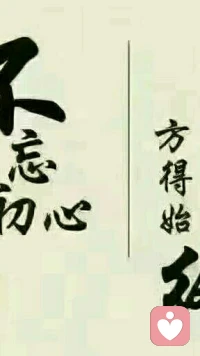 不
忘
初心
方得始